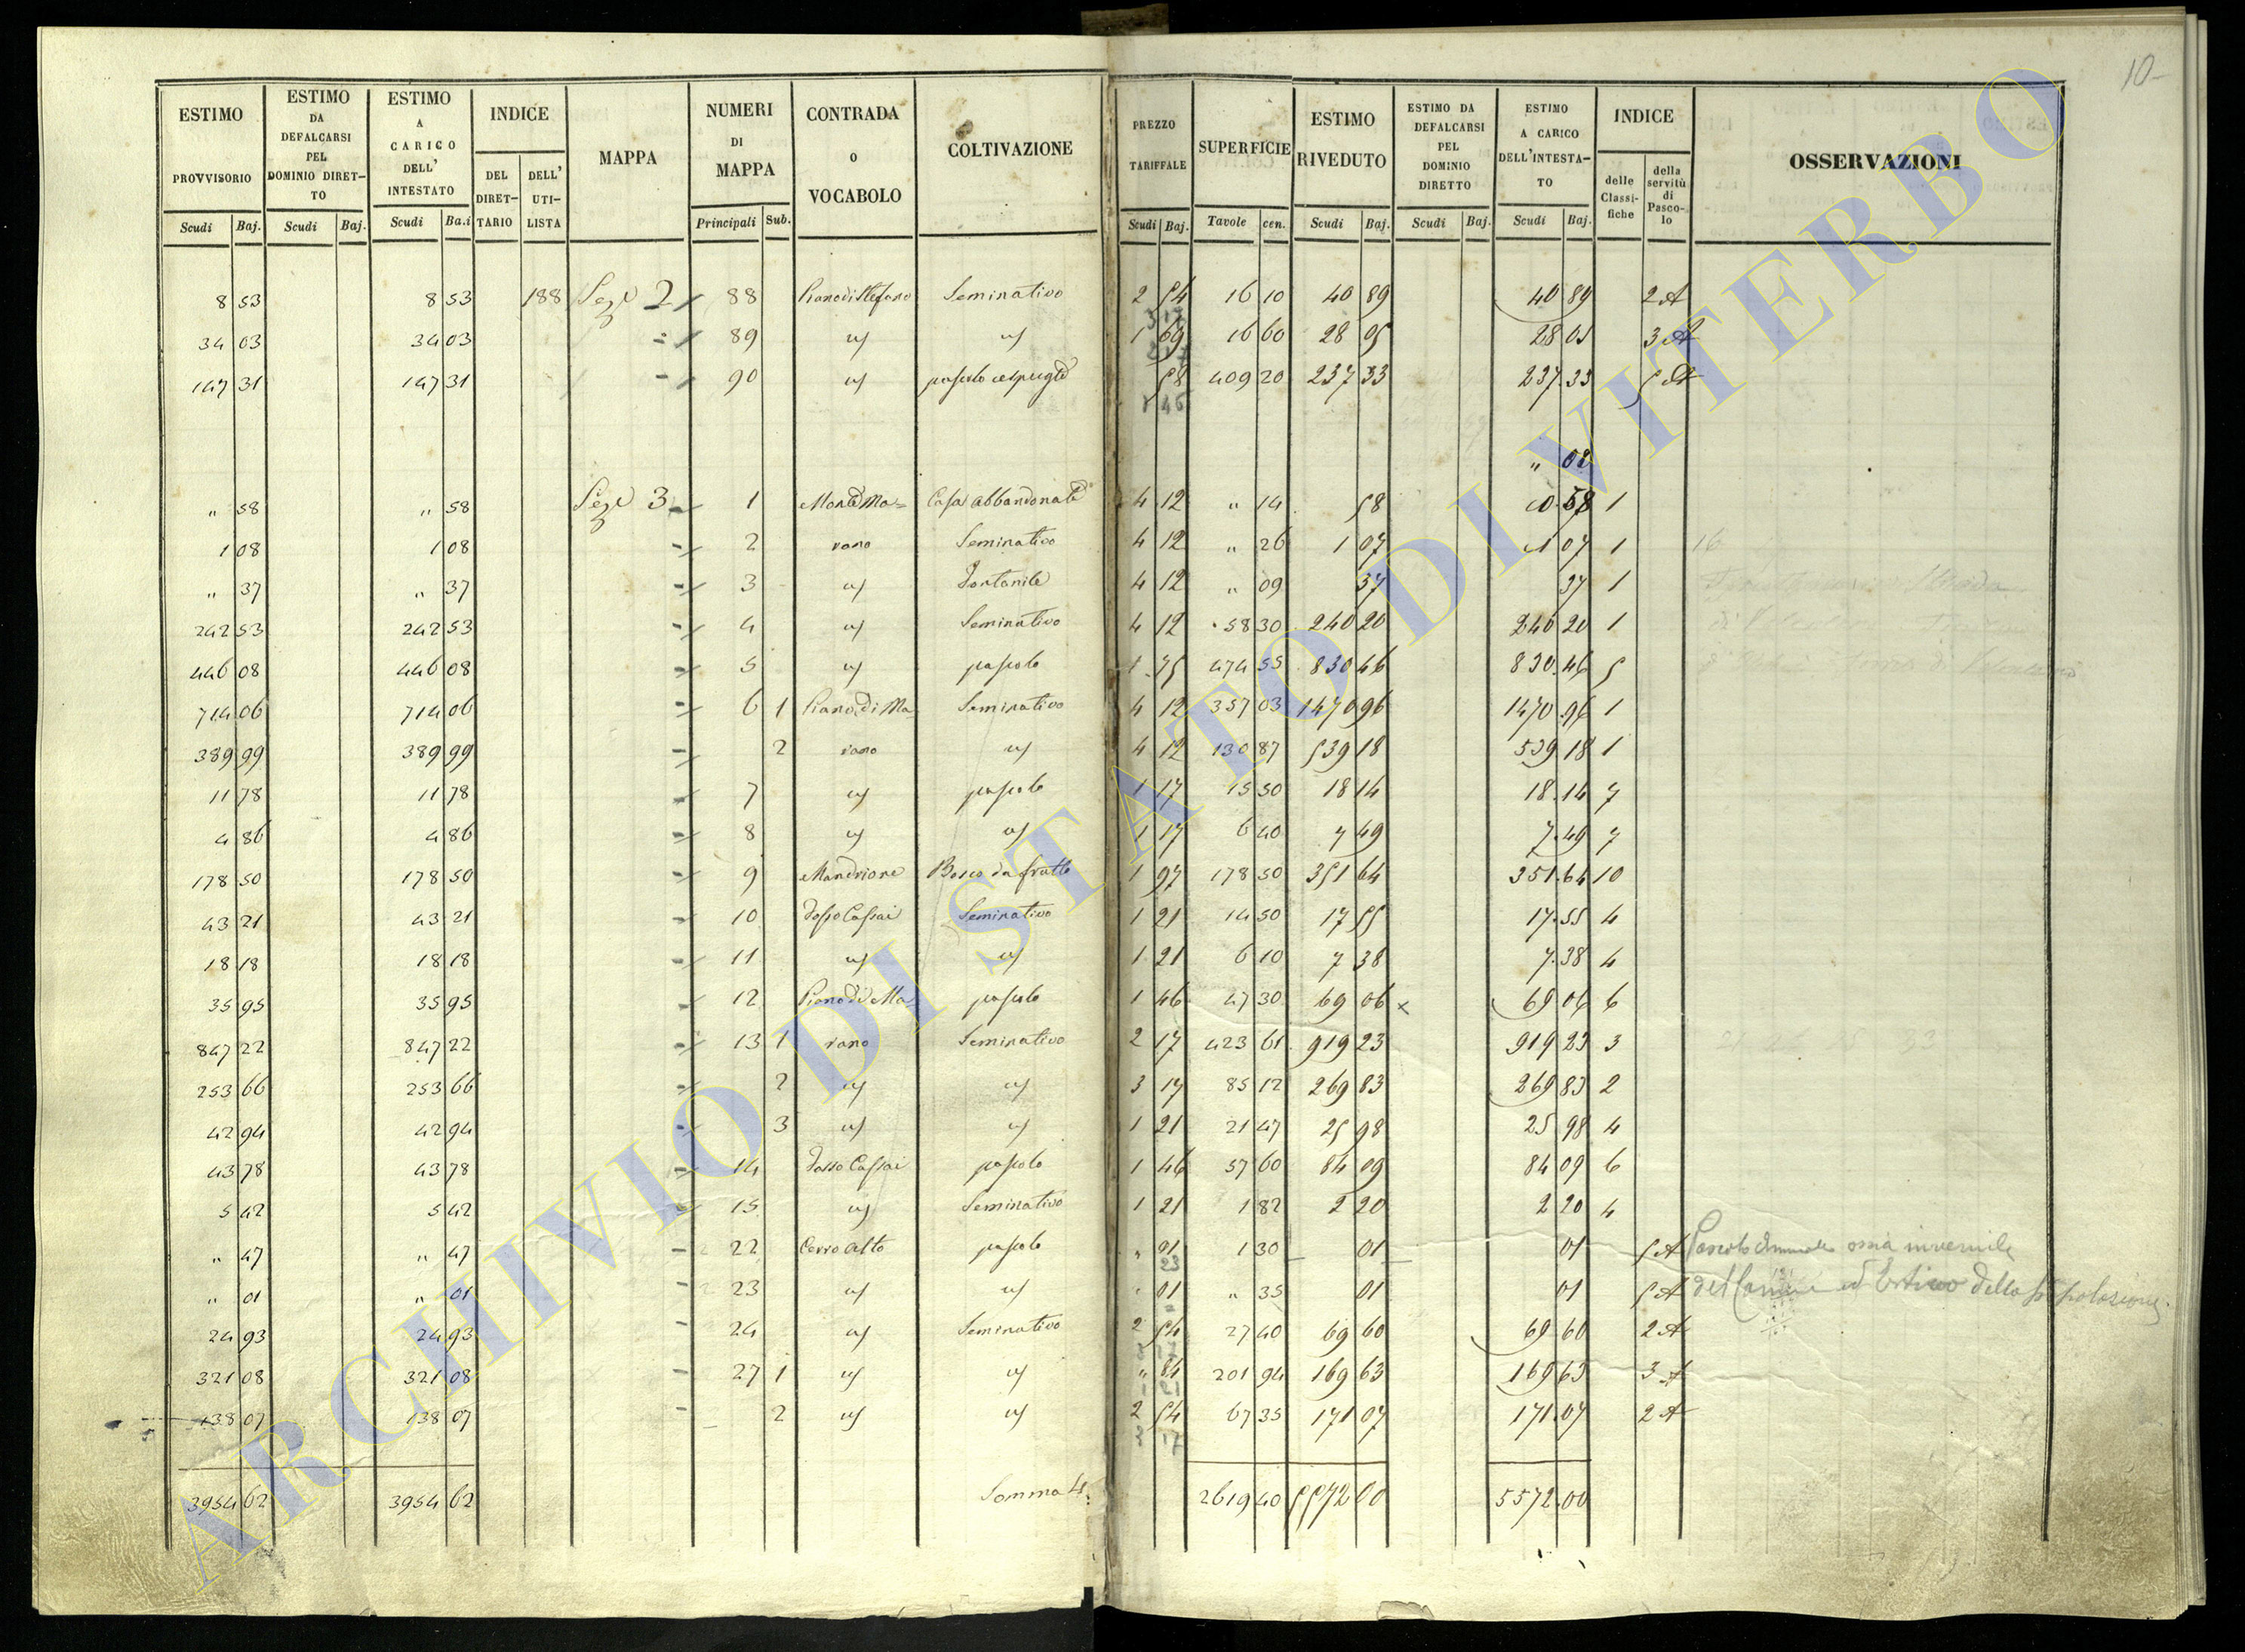 10-
ESTIMO PROVVISORIO | ESTIMO DA DEFALCARSI PEL DOMINIO DIRETTO | ESTIMO A CARICO DELL' INTESTATO | INDICE | MAPPA | NUMERI DI MAPPA | CONTRADA O VOCABOLO | COLTIVAZIONE | PREZZO TARIFFALE | SUPERFICIE | ESTIMO RIVEDUTO | ESTIMO DA DEFALCARSI PEL DOMINIO DIRETTO | ESTIMO A CARICO DELL'INTESTATO | INDICE | OSSERVAZIONI
DEL DIRETTARIO | DELL' UTILISTA | delle Classifiche | della servitù di Pascolo
Scudi | Baj. | Scudi | Baj. | Scudi | Ba.i | Principali | Sub. | Scudi | Baj. | Tavole | cen. | Scudi | Baj. | Scudi | Baj. | Scudi | Baj.
8 53 | 8 53 | 188 | Sez. 2 | 88 | Piano di Stefano | Seminativo | 2 54 | 16 10 | 40 89 | 40 89 | 2 A
34 03 | 34 03 | 89 | " | " | 1 69 | 16 60 | 28 05 | 28 05 | 3 A
147 31 | 147 31 | 90 | " | pascolo cespuglto | 58 | 409 20 | 237 33 | 237.33 | 5 A
" 02
" 58 | " 58 | Sez. 3 | 1 | Monte Ma= | Casa abbandonata | 4 12 | " 14 | 58 | 0.58 | 1
1 08 | 1 08 | 2 | rano | Seminativo | 4 12 | " 26 | 1 07 | 1 07 | 1
" 37 | " 37 | 3 | " | Fontanile | 4 12 | " 09 | 37 | 37 | 1
242 53 | 242 53 | 4 | " | Seminativo | 4 12 | 58 30 | 240 20 | 240 20 | 1
446 08 | 446 08 | 5 | " | pascolo | 1 75 | 474 55 | 830 46 | 830.46 | 5
714 06 | 714 06 | 6 | 1 | Piano di Ma | Seminativo | 4 12 | 357 03 | 1470 96 | 1470.96 | 1
389 99 | 389 99 | 2 | rano | " | 4 12 | 130 87 | 539 18 | 539 18 | 1
11 78 | 11 78 | 7 | " | pascolo | 1 17 | 15 50 | 18 14 | 18.14 | 7
4 86 | 4 86 | 8 | " | " | 1 17 | 6 40 | 7 49 | 7.49 | 7
178 50 | 178 50 | 9 | Mandrione | Bosco da frutto | 1 97 | 178 50 | 351 64 | 351.64 | 10
43 21 | 43 21 | 10 | Fosso Cassai | Seminativo | 1 21 | 14 50 | 17 55 | 17.55 | 4
18 18 | 18 18 | 11 | " | " | 1 21 | 6 10 | 7 38 | 7.38 | 4
35 95 | 35 95 | 12 | Piano di Ma | pascolo | 1 46 | 47 30 | 69 06 | x | 69 06 | 6
847 22 | 847 22 | 13 | 1 | rano | Seminativo | 2 17 | 423 61 | 919 23 | 919 23 | 3
253 66 | 253 66 | 2 | " | " | 3 17 | 85 12 | 269 83 | 269 83 | 2
42 94 | 42 94 | 3 | " | " | 1 21 | 21 47 | 25 98 | 25 98 | 4
43 78 | 43 78 | 14 | Fosso Cassai | pascolo | 1 46 | 57 60 | 84 09 | 84 09 | 6
5 42 | 5 42 | 15 | " | Seminativo | 1 21 | 1 82 | 2 20 | 2 20 | 4
" 47 | " 47 | 22 | Cerro alto | pascolo | " 01 | 1 30 | 01 | 01 | 5 A | Pascolo ossia invernile
" 01 | " 01 | 23 | " | " | 01 | " 35 | 01 | 01 | 5 A | del ed Estivo della Popolazione.
24 93 | 24 93 | 24 | " | Seminativo | 2 54 | 27 40 | 69 60 | 69.60 | 2 A
321 08 | 321 08 | 27 | 1 | " | " | " 84 | 201 94 | 169 63 | 169 63 | 3 A
138 07 | 138 07 | 2 | " | " | 2 54 | 67 35 | 171 07 | 171.07 | 2 A
3954 62 | 3954 62 | Somma | 2619 40 | 5572 00 | 5572.00
ARCHIVIO DI STATO DI VITERBO